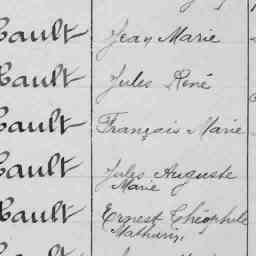 Cault Jean Marie
Cault Jules René
Cault François Marie
Cault Jules Auguste
Marie
Cault Ernest Théophile
Mathurin